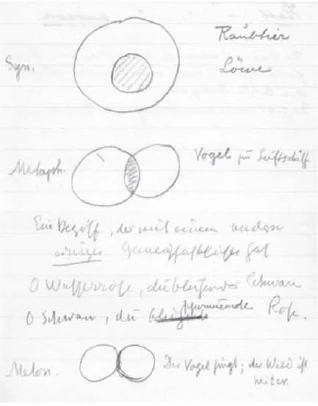 Raubtier
Syn. Löwe
Metaph. Vogel zu Luftschiff
Ein Begriff, der mit einem andern
einiges Gemeinschaftliches hat
O Wasserrose, du blühender Schwan
O Schwan, du schwimmende Rose.
Meton. Der Vogel singt; der Wald ist
heiter.